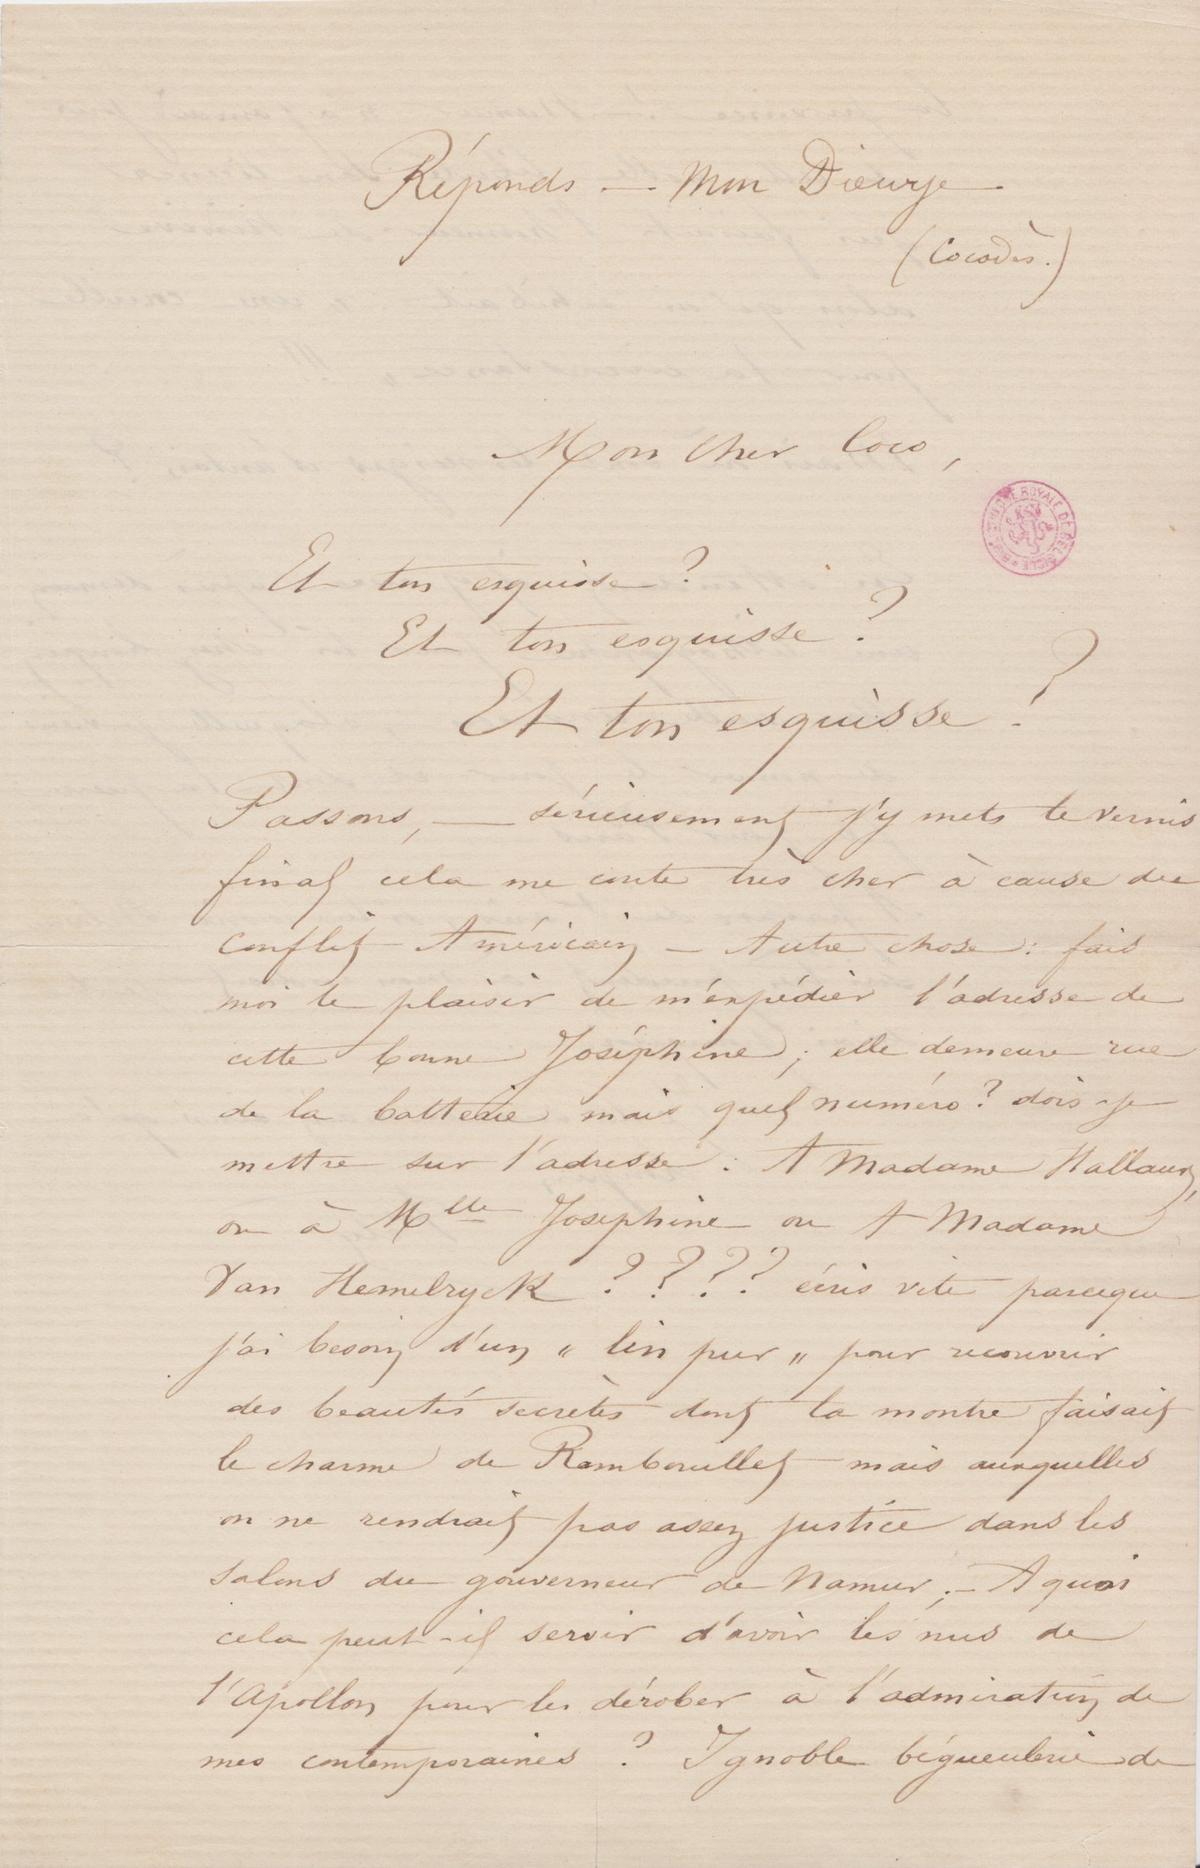 Réponds — Mon Dieu, je
(Cocodès.)
Mon cher Coco,
BIBLIOTHÈQUE ROYALE DE BELGIQUE
Et ton esquisse ?
Et ton esquisse ?
Et ton esquisse ?
Passons, — sérieusement j'y mets le vernis
final cela me coute très cher à cause du
conflit Américain — Autre chose : fais
moi le plaisir de m'expédier l'adresse de
cette bonne Joséphine ; elle demeure rue
de la batterie mais quel numéro ? dois-je
mettre sur l'adresse : A Madame Hallaux,
ou à Mlle Joséphine ou A Madame
Van Hemelryck ???? écris vite parceque
j'ai besoin d'un „ lin pur „ pour recouvrir
des beautés secrètes dont la montre faisait
le charme de Rambouillet mais auxquelles
on ne rendrait pas assez justice dans les
salons du gouverneur de Namur ; — A quoi
cela peut-il servir d'avoir les nus de
l'Apollon pour les dérober à l'admiration de
mes contemporaines ? Ignoble bégueulerie de